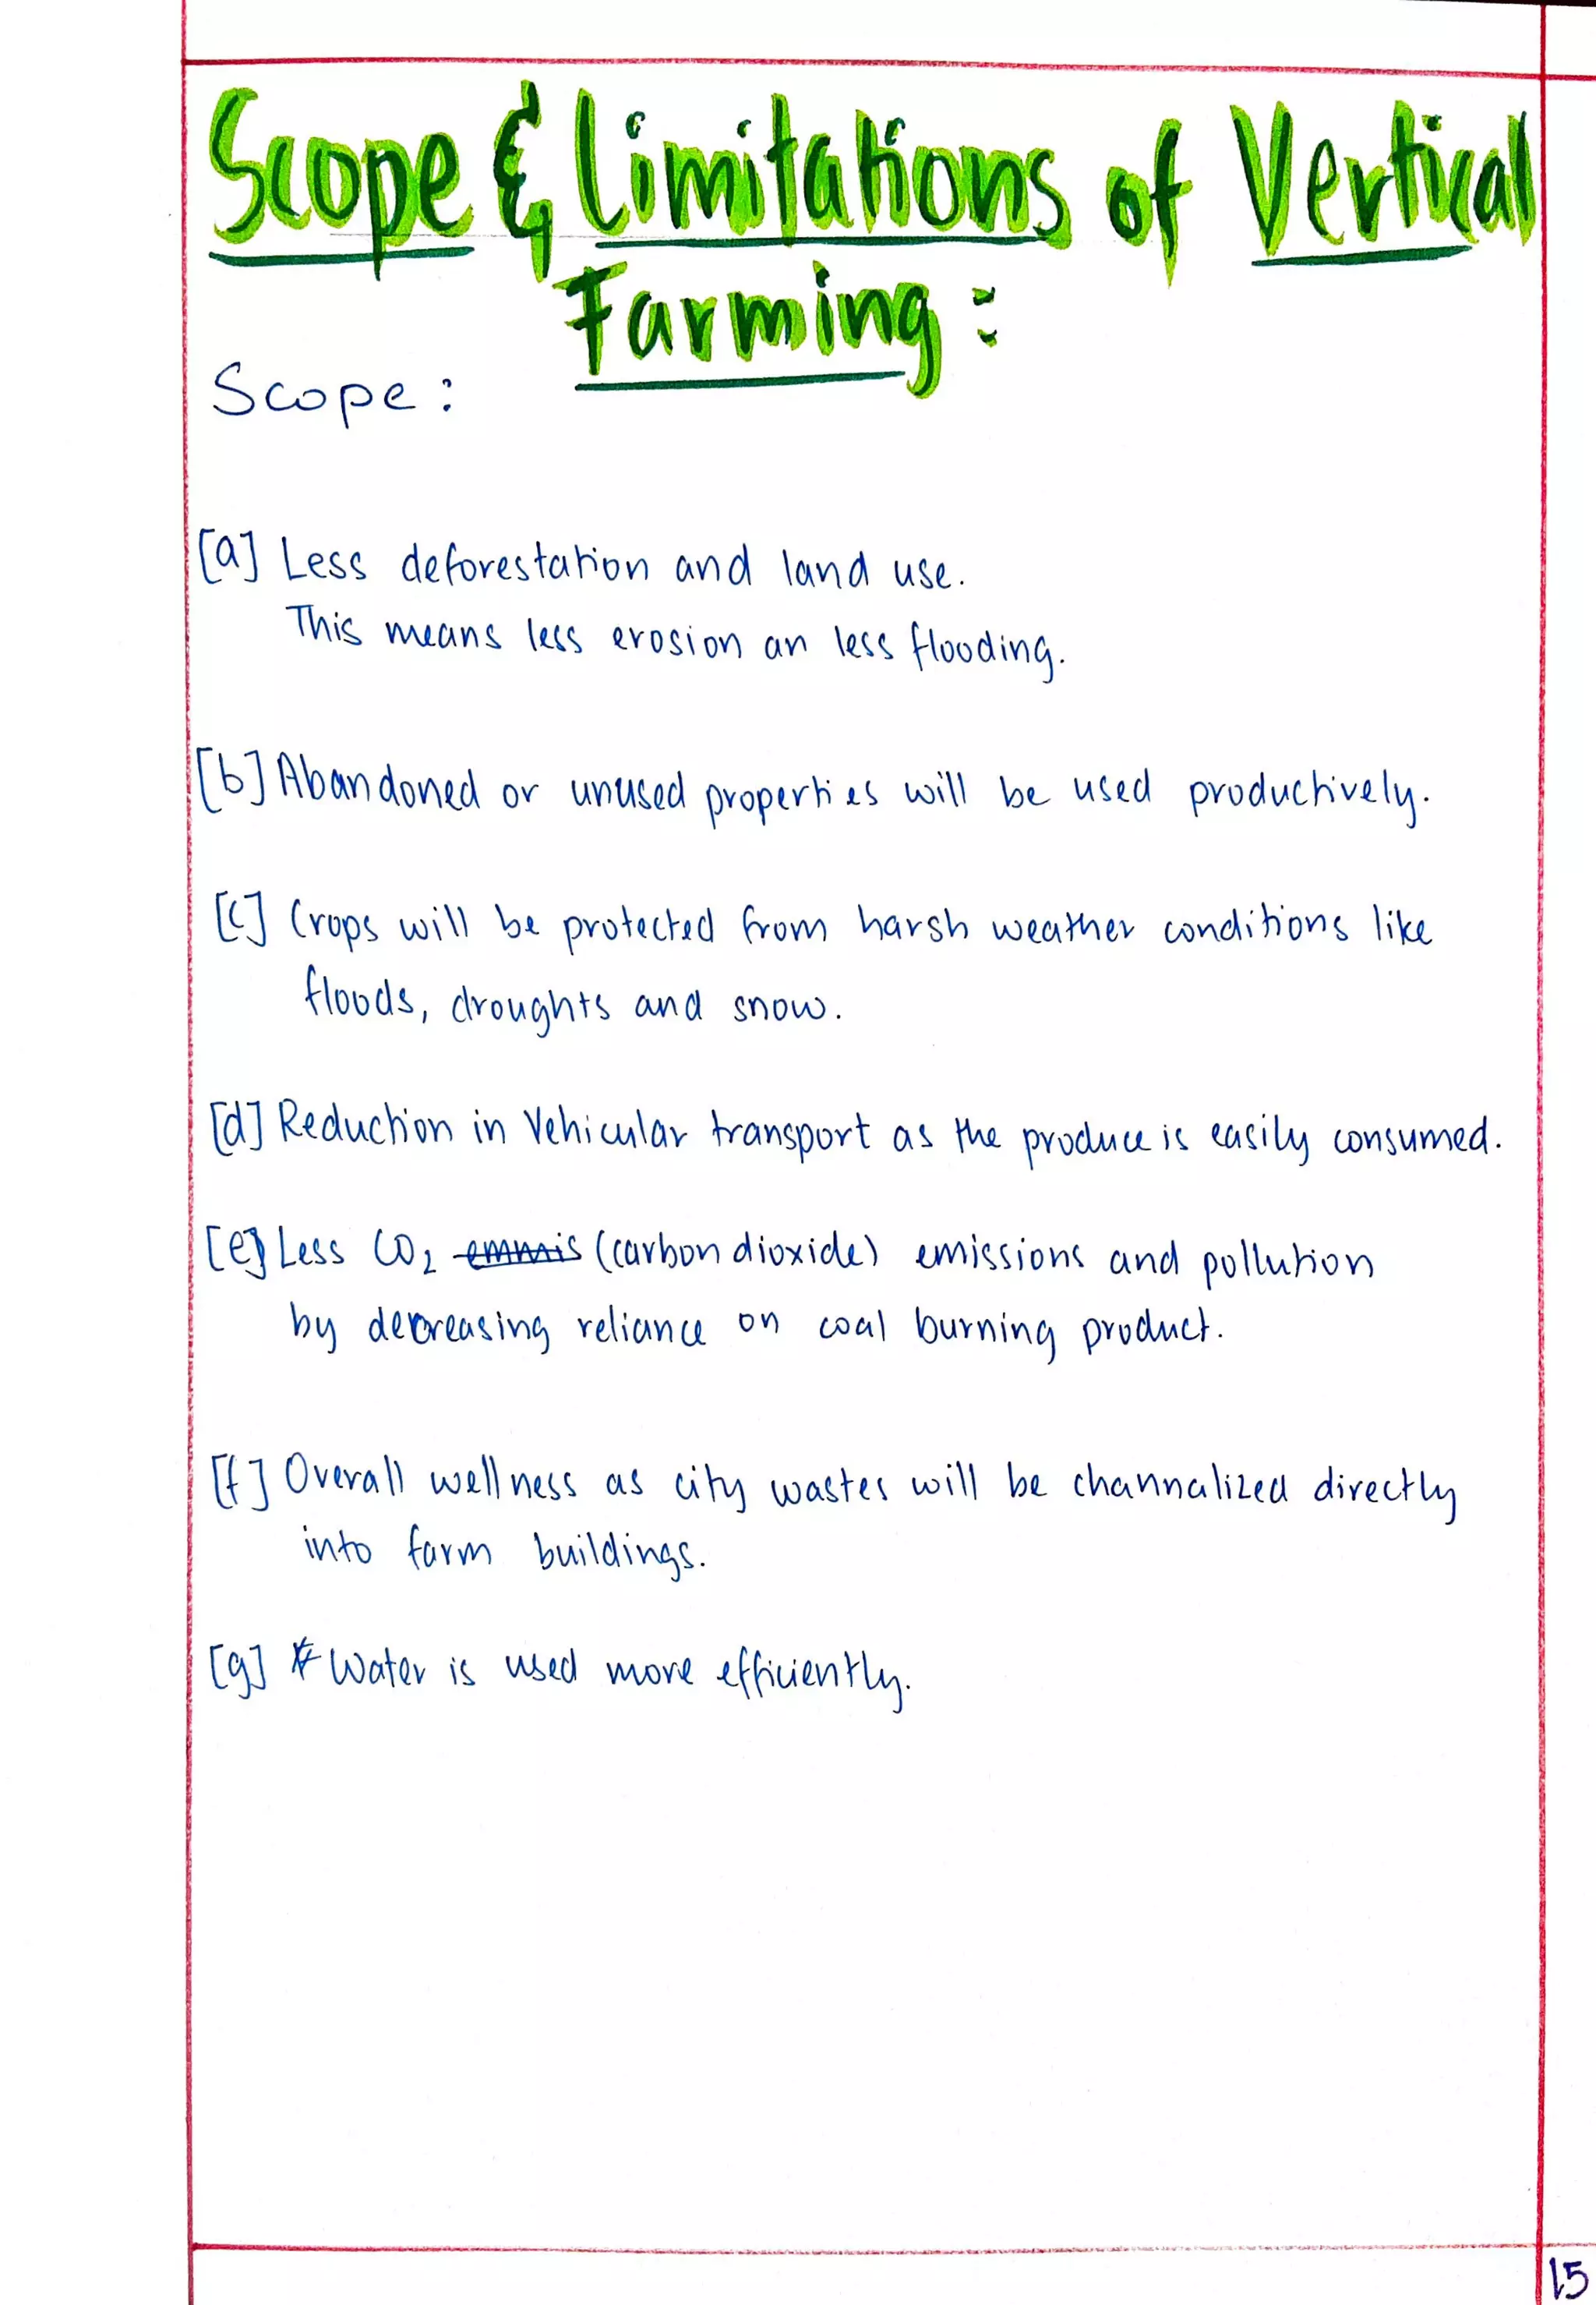 Scope & Limitations of Vertical
Farming:
Scope:
[a] Less deforestation and land use.
This means less erosion an less flooding.
[b] Abandoned or unused properties will be used productively.
[c] Crops will be protected from harsh weather conditions like
floods, droughts and snow.
[d] Reduction in Vehicular transport as the produce is easily consumed.
[e] Less CO₂ emmis (carbon dioxide) emissions and pollution
by decreasing reliance on coal burning product.
[f] Overall wellness as city wastes will be channalized directly
into farm buildings.
[g] Water is used more efficiently.
15